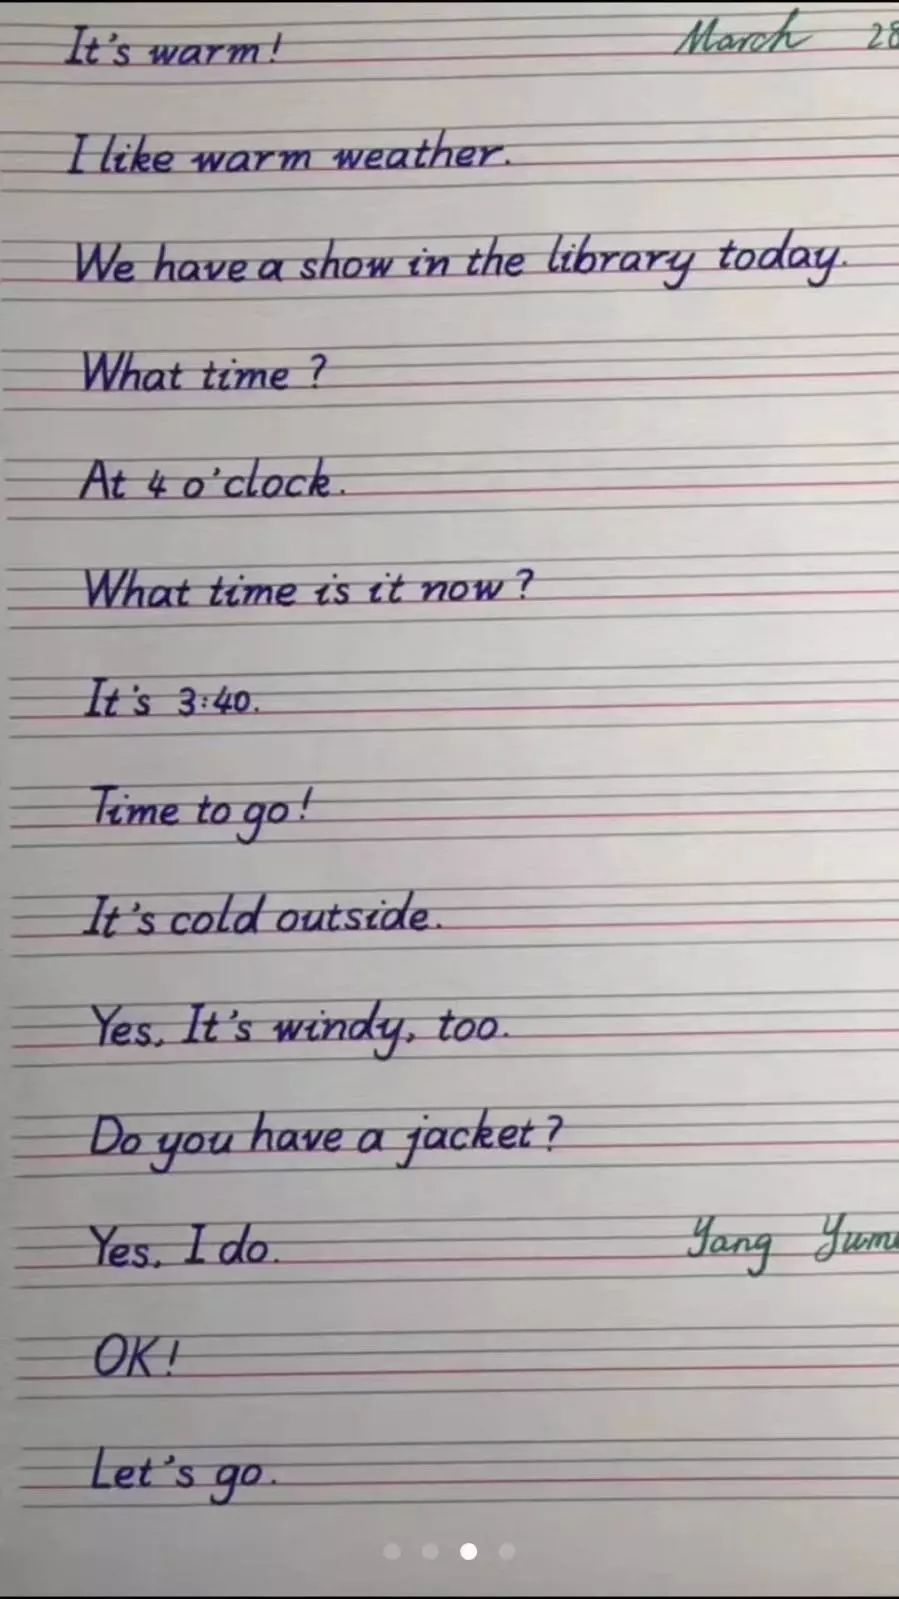 It's warm! March 28
I like warm weather.
We have a show in the library today.
What time ?
At 4 o'clock.
What time is it now ?
It's 3:40.
Time to go!
It's cold outside.
Yes. It's windy, too.
Do you have a jacket ?
Yes. I do. Yang
OK!
Let's go.